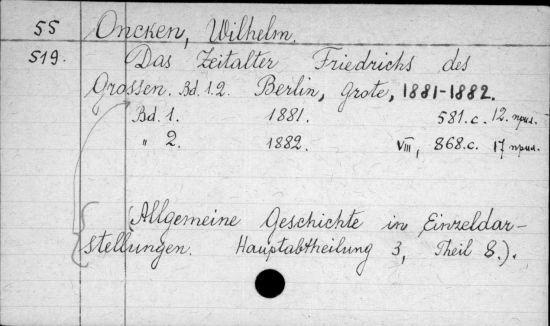 55 Oncken, Wilhelm.
519. Das Zeitalter Friedrichs des
Grossen. Bd. 1.2. Berlin, Grote, 1881-1882.
Bd. 1. 1881. 581. c. 12. прил.
" 2. 1882. VIII, 868. c. 17 прил.
(Allgemeine Geschichte in Einzeldar-
stellungen. Hauptabtheilung 3, Theil 8.).